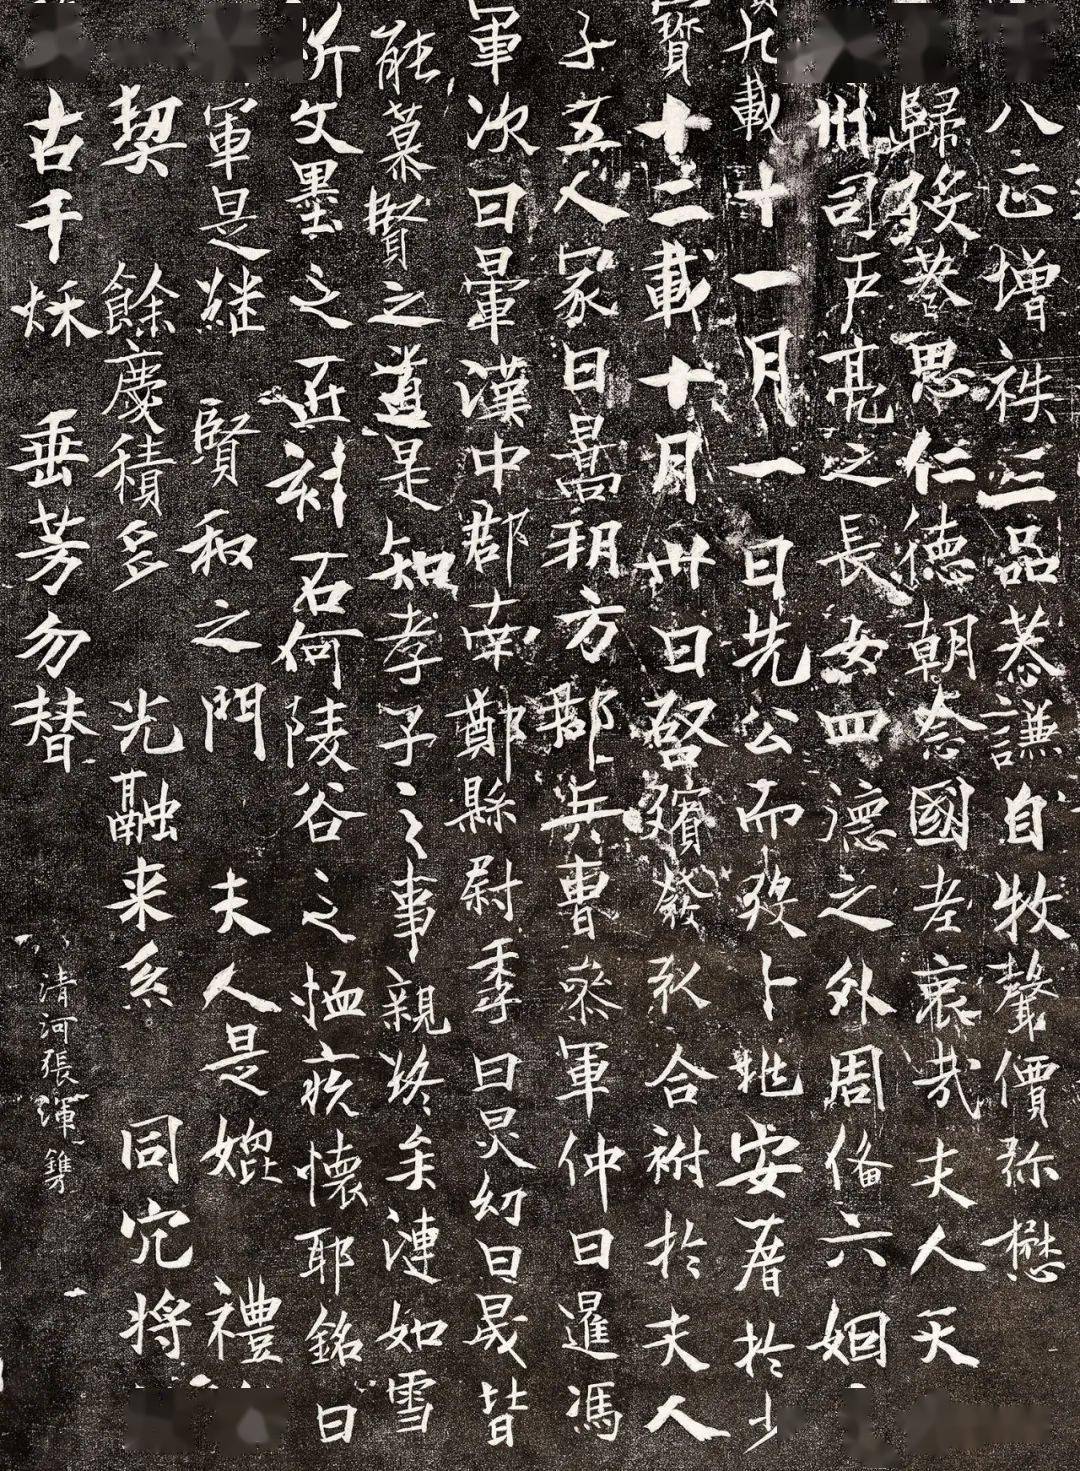 八正增袟三品恭謙自牧聲價弥懋
歸葬思仁德朝念國老哀哉夫人天
州司戶亮之長女四德之外周俻六姻
九載十一月一日先公而歿卜兆安厝於少
寶十二載十月卅日啓殯發引合祔於夫人
子五人家曰暠朔方郡兵曹叅軍仲曰暹馮
軍次曰暈漢中郡南鄭縣尉季曰炅幼曰晟皆
能慕賢之道是知孝子之事親終矣漣如雪
於文墨之近刻石何陵谷之恤疚懷耶銘曰
軍是继 賢和之門 夫人是媲 禮
契 餘慶積多 光融来系 同穴将
古千秌 垂芳勿替
清河張渾鎸